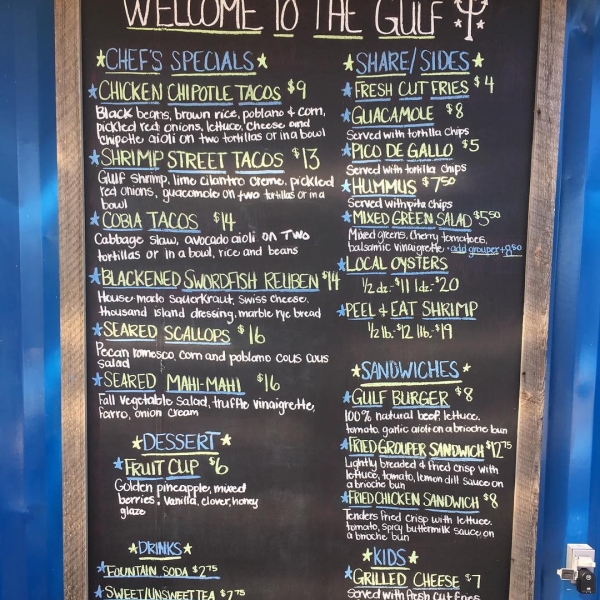 WELCOME TO THE GULF
CHEF'S SPECIALS
CHICKEN CHIPOTLE TACOS $9
Black beans, brown rice, poblano & corn,
pickled red onions, lettuce, cheese and
chipotle aioli on two tortillas or in a bowl
SHRIMP STREET TACOS $13
Gulf shrimp, lime cilantro creme, pickled
red onions, guacamole on two tortillas or in a
bowl
COBIA TACOS $14
Cabbage slaw, avocado aioli on two
tortillas or in a bowl, rice and beans
BLACKENED SWORDFISH REUBEN $14
House-made sauerkraut, swiss cheese,
thousand island dressing, marble rye bread
SEARED SCALLOPS $16
Pecan romesco, corn and poblano cous cous
salad
SEARED MAHI-MAHI $16
Fall vegetable salad, truffle vinaigrette,
farro, onion cream
DESSERT
FRUIT CUP $6
Golden pineapple, mixed
berries, vanilla, clover, honey
glaze
DRINKS
FOUNTAIN SODA $2.75
SWEET/UNSWEET TEA $2.75
SHARE/SIDES
FRESH CUT FRIES $4
GUACAMOLE $8
Served with tortilla chips
PICO DE GALLO $5
Served with tortilla chips
HUMMUS $7.50
Served with pita chips
MIXED GREEN SALAD $5.50
Mixed greens, cherry tomatoes,
balsamic vinaigrette • add grouper +8.50
LOCAL OYSTERS
1/2 dz. - $11 1 dz. - $20
PEEL + EAT SHRIMP
1/2 lb. - $12 1 lb. - $19
SANDWICHES
GULF BURGER $8
100% natural beef, lettuce,
tomato, garlic aioli on a brioche bun
FRIED GROUPER SANDWICH $12.75
Lightly breaded & fried crisp with
lettuce, tomato, lemon dill sauce on
a brioche bun
FRIED CHICKEN SANDWICH $8
Tenders fried crisp with lettuce,
tomato, spicy buttermilk sauce, on
a brioche bun
KIDS
GRILLED CHEESE $7
Served with fresh cut fries